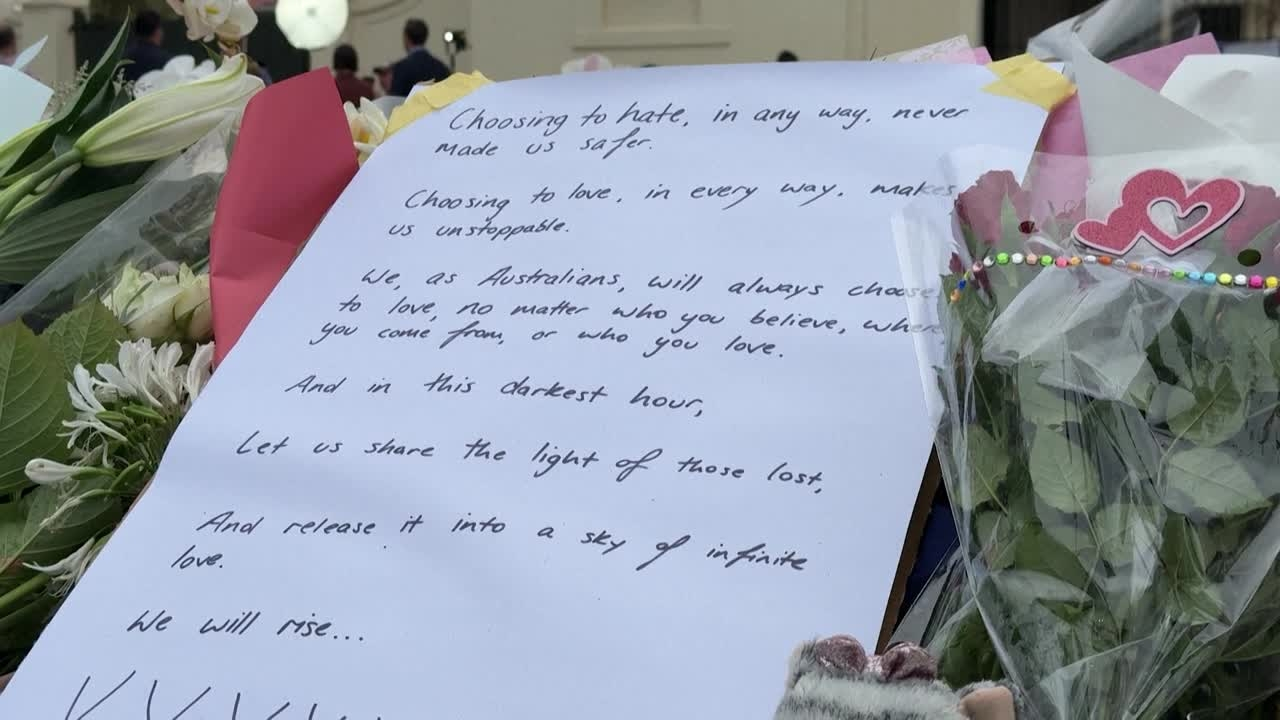 Choosing to hate, in any way, never
made us safer.
Choosing to love, in every way, makes
us unstoppable.
We, as Australians, will always choose
to love, no matter who you believe, where
you come from, or who you love.
And in this darkest hour,
Let us share the light of those lost,
And release it into a sky of infinite
love.
We will rise...